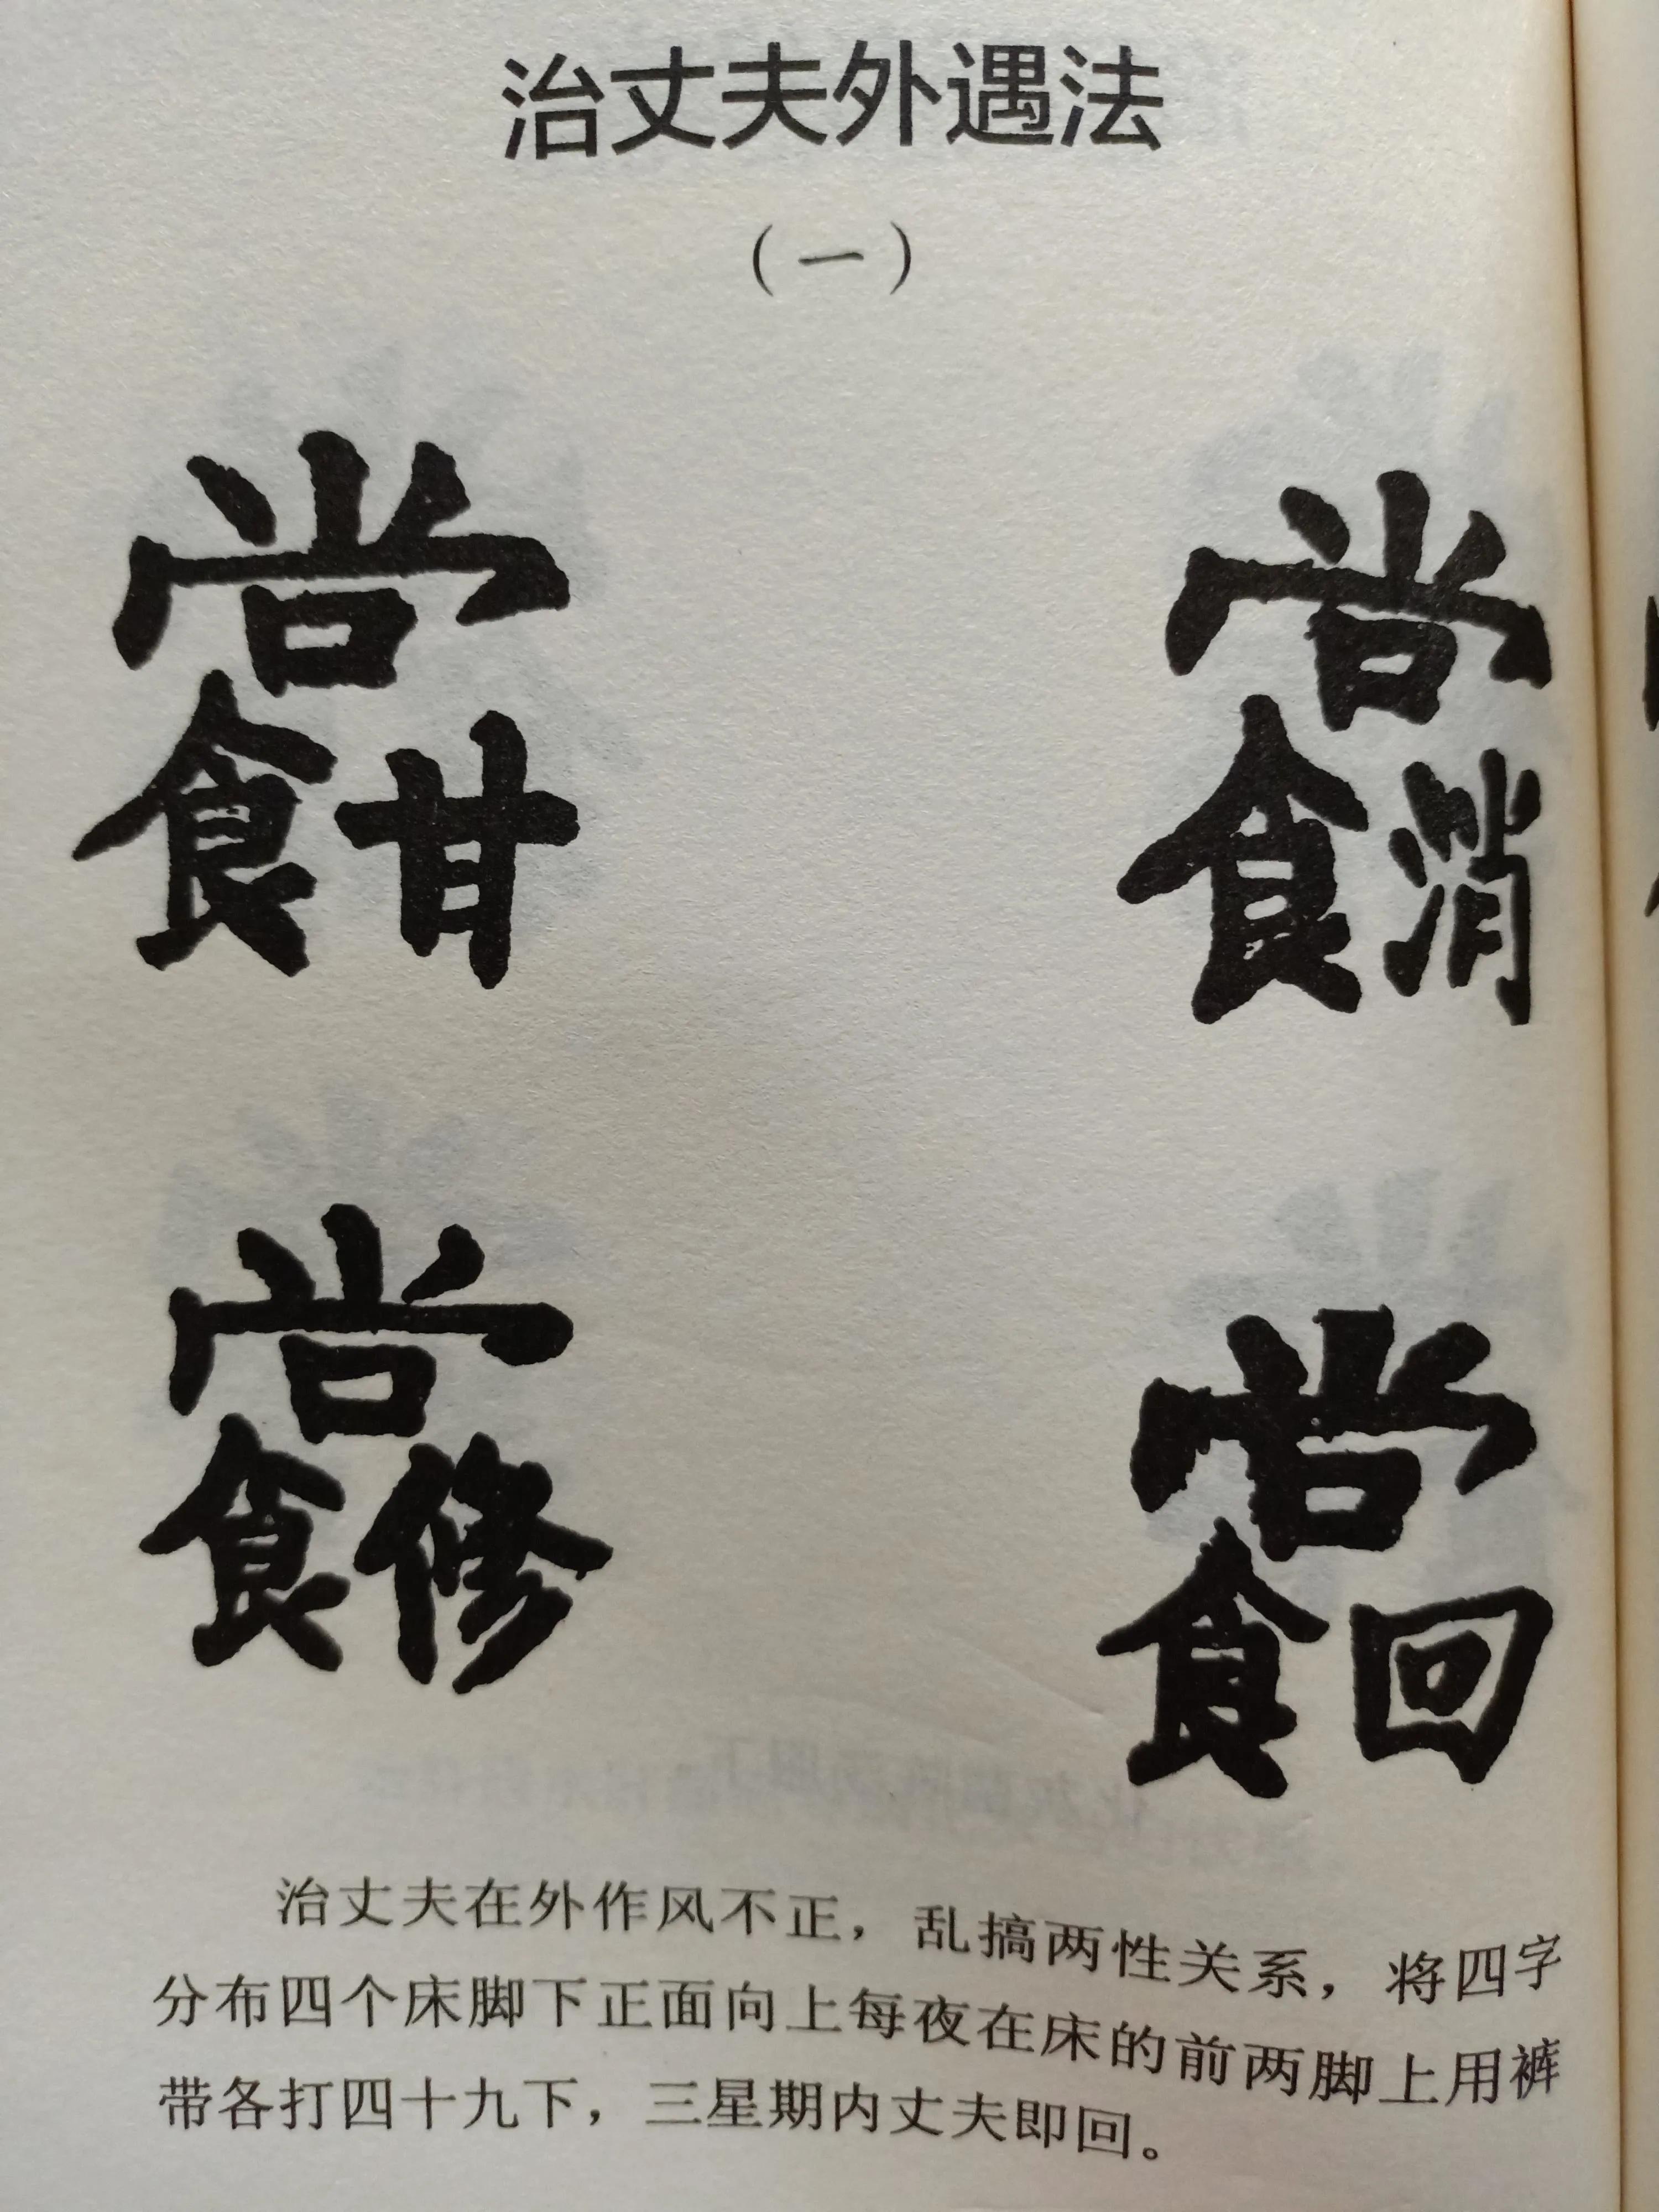 治丈夫外遇法
（一）
尚 尚
食甘 食消
尚 尚
食修 食回
治丈夫在外作风不正，乱搞两性关系，将四字
分布四个床脚下正面向上每夜在床的前两脚上用裤
带各打四十九下，三星期内丈夫即回。